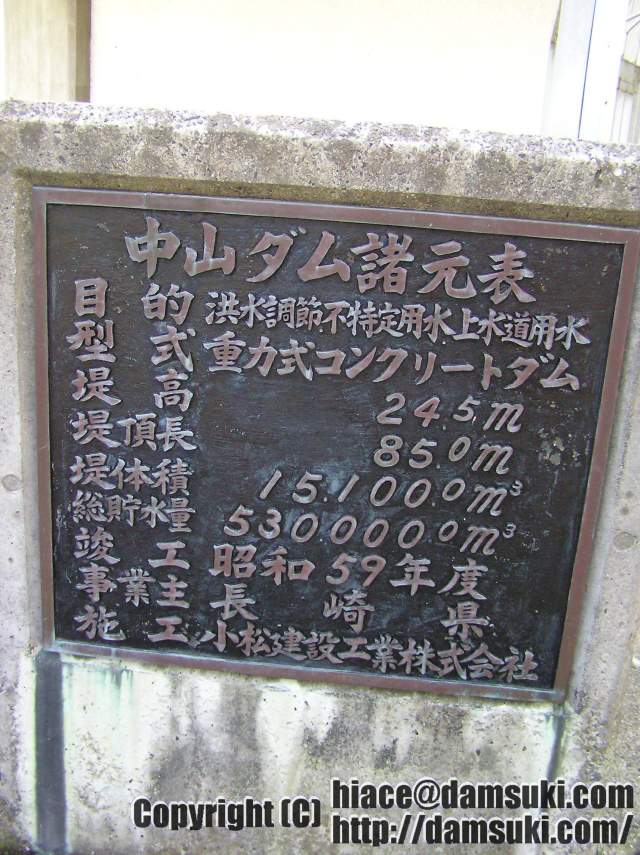 中山ダム諸元表
目的 洪水調節不特定用水上水道用水
型式 重力式コンクリートダム
堤高 24.5m
堤頂長 85.0m
堤体積 15.100.0m³
総貯水量 530000.0m³
竣工 昭和59年度
事業主 長崎県
施工 小松建設工業株式会社
Copyright (C) hiace@damsuki.com
http://damsuki.com/